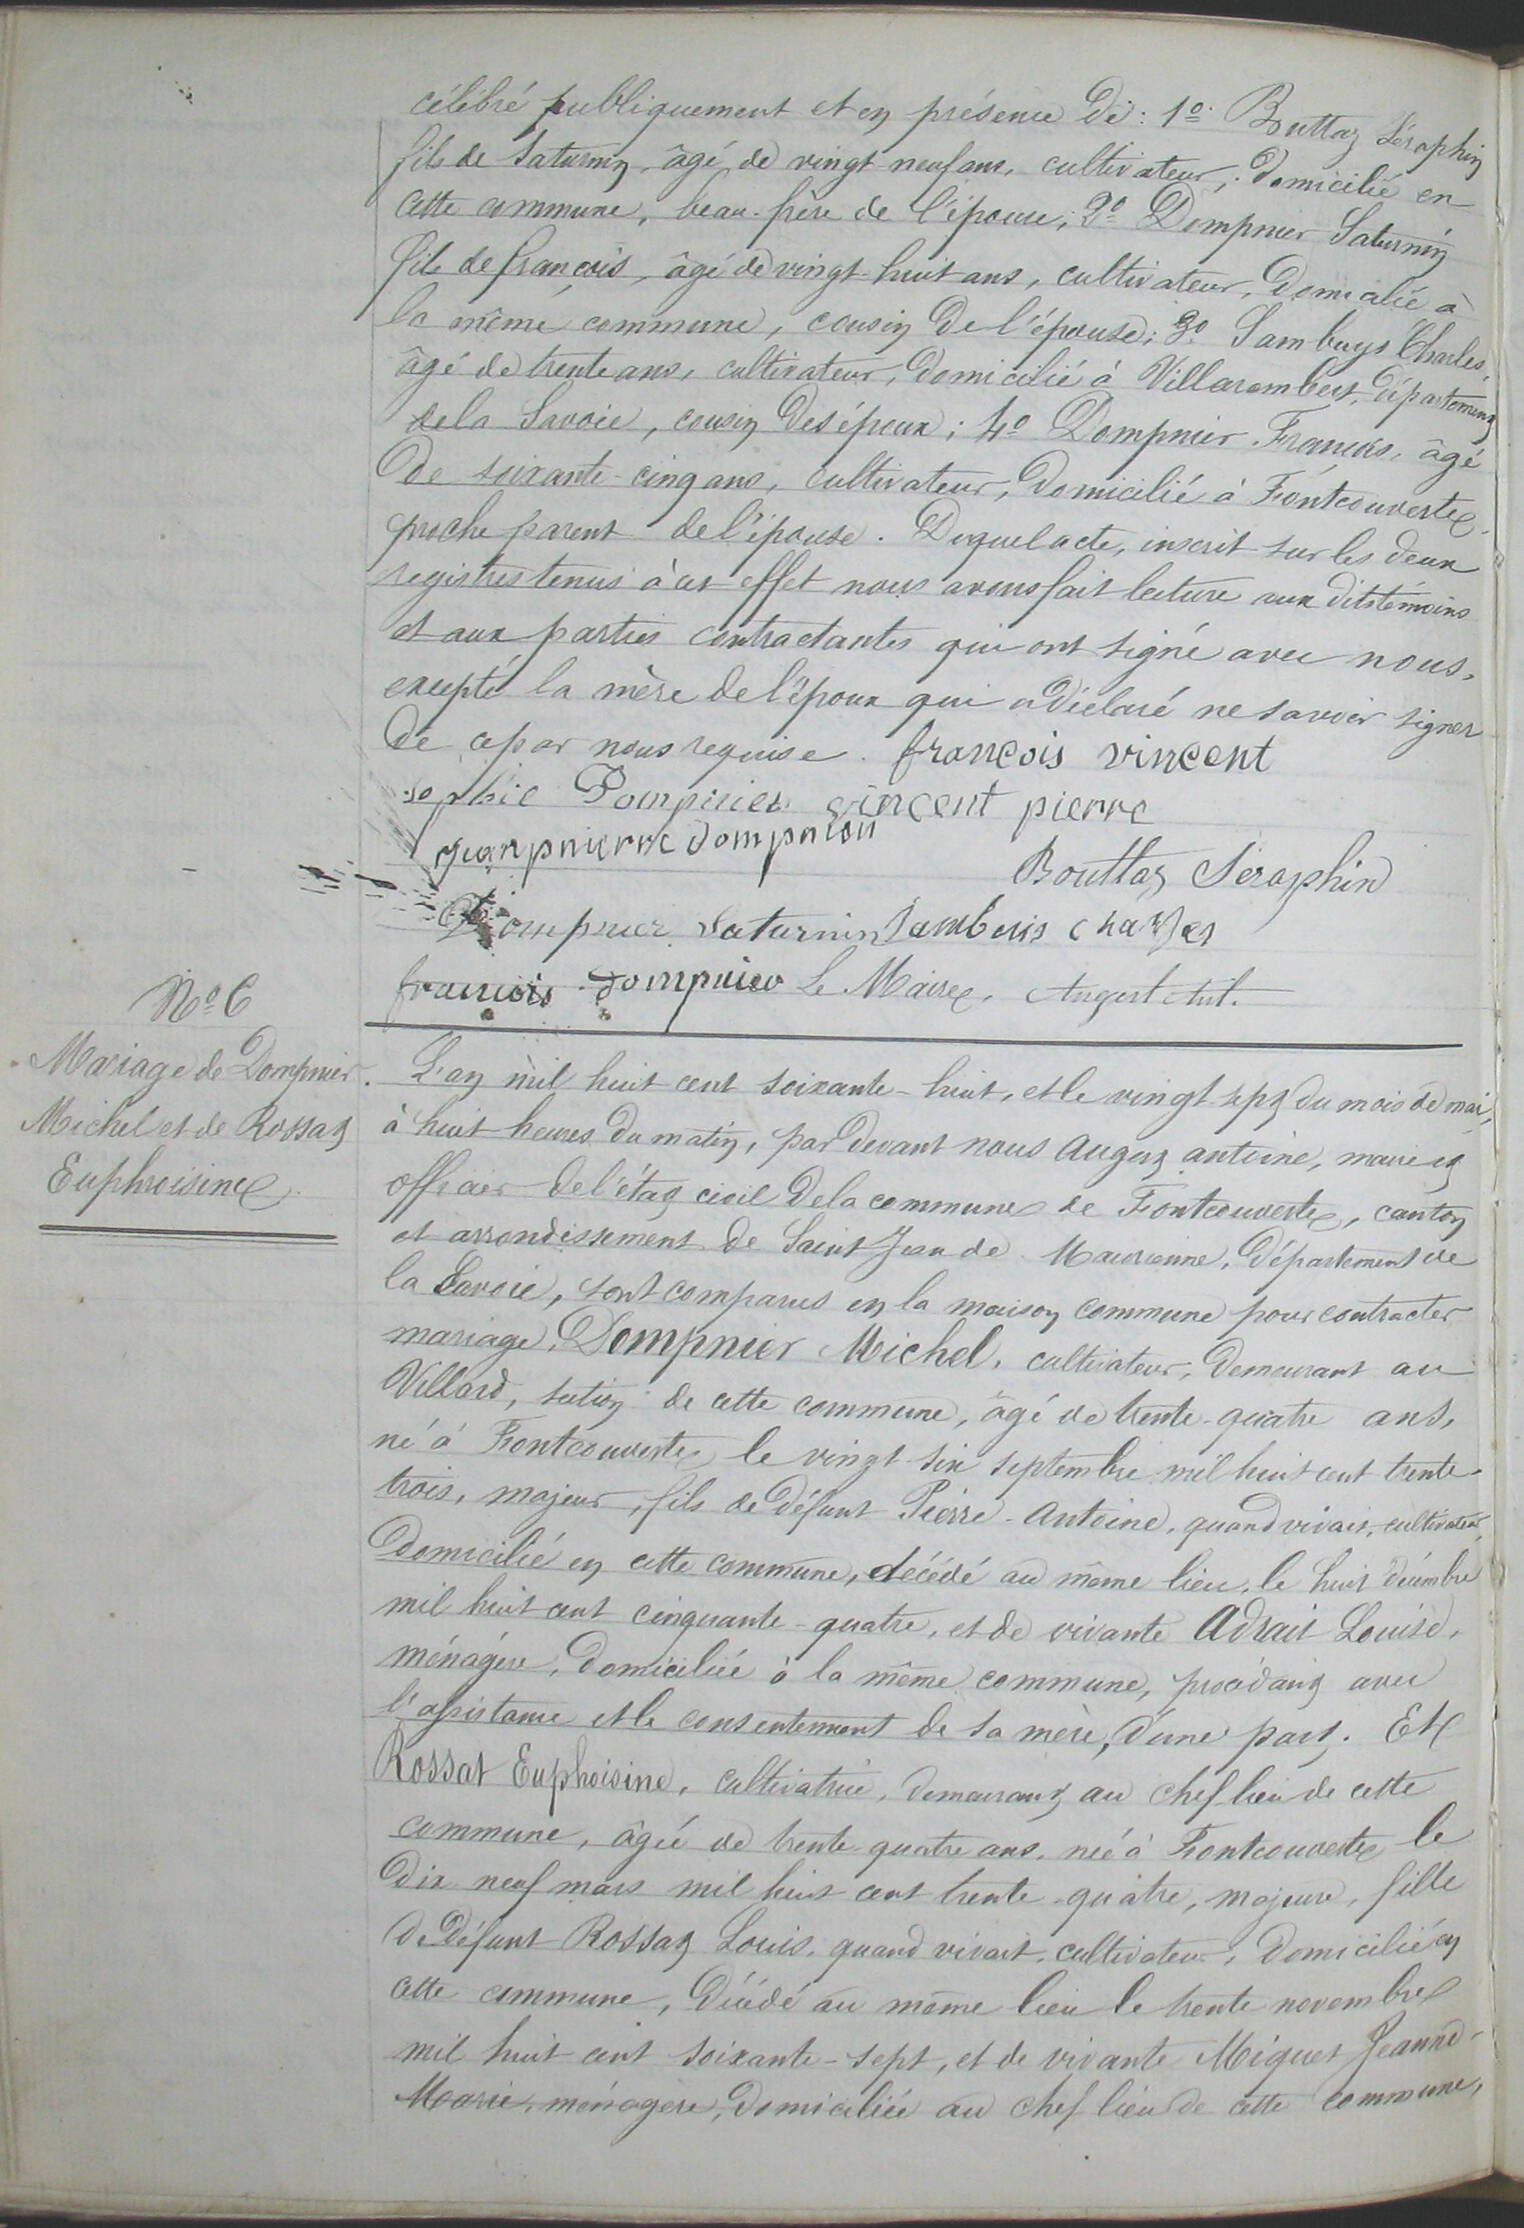 célébré publiquement et en présence de : 1o. Bouttaz Séraphin
fils de Saturnin, âgé de vingt-neuf ans, cultivateur, domicilié en
cette commune, beau-frère de l'épouse; 2o Dompnier Saturnin
fils de françois, âgé de vingt-huit ans, cultivateur, domicilié à
la même commune, cousin de l'épouse; 3o Sambuys Charles,
âgé de trente ans, cultivateur, domicilié à Villarembert, département
de la Savoie, cousin des époux; 4o Dompnier François, âgé
de soixante-cinq ans, cultivateur, domicilié à Fontcouverte,
proche parent de l'épouse. Duquel acte, inscrit sur les deux
registres tenus à cet effet nous avons fait lecture aux dits témoins
et aux parties contractantes qui ont signé avec nous,
excepté la mère de l'époux qui a déclaré ne savoir signer
de ce par nous requise. françois vincent
sophie Dompnier vincent pierre
dompnier
Bouttaz Séraphin
Dompnier Saturnin Sambuis charles
francois dompnier Le Maire, Augert Ant.
No 6
Mariage de Dompnier
Michel et de Rossat
Euphroisine
L'an mil huit cent soixante-huit, et le vingt sept du mois de mai,
à huit heures du matin, par devant nous Augert antoine, maire et
officier de l'état civil de la commune de Fontcouverte, canton
et arrondissement de Saint Jean de Maurienne, département de
la Savoie, sont comparus en la maison commune pour contracter
mariage, Dompnier Michel, cultivateur, demeurant au
Villard, section de cette commune, âgé de trente-quatre ans,
né à Fontcouverte le vingt-six septembre mil huit cent trente-
trois, majeur, fils de défunt Pierre-Antoine, quand vivait, cultivateur,
domicilié en cette commune, décédé au même lieu, le huit décembre
mil huit cent cinquante-quatre, et de vivante Adrait Louise,
ménagère, domiciliée à la même commune, procédant avec
l'assistance et le consentement de sa mère, d'une part. Et
Rossat Euphoisine, cultivatrice, demeurant au chef-lieu de cette
commune, âgée de trente-quatre ans, née à Fontcouverte le
dix neuf mars mil huit cent trente-quatre, majeure, fille
de défunt Rossat Louis, quand vivait, cultivateur, domicilié en
cette commune, décédé au même lieu le trente novembre
mil huit cent soixante-sept, et de vivante Miguet Jeanne-
Marie, ménagère, domiciliée au chef lieu de cette commune,